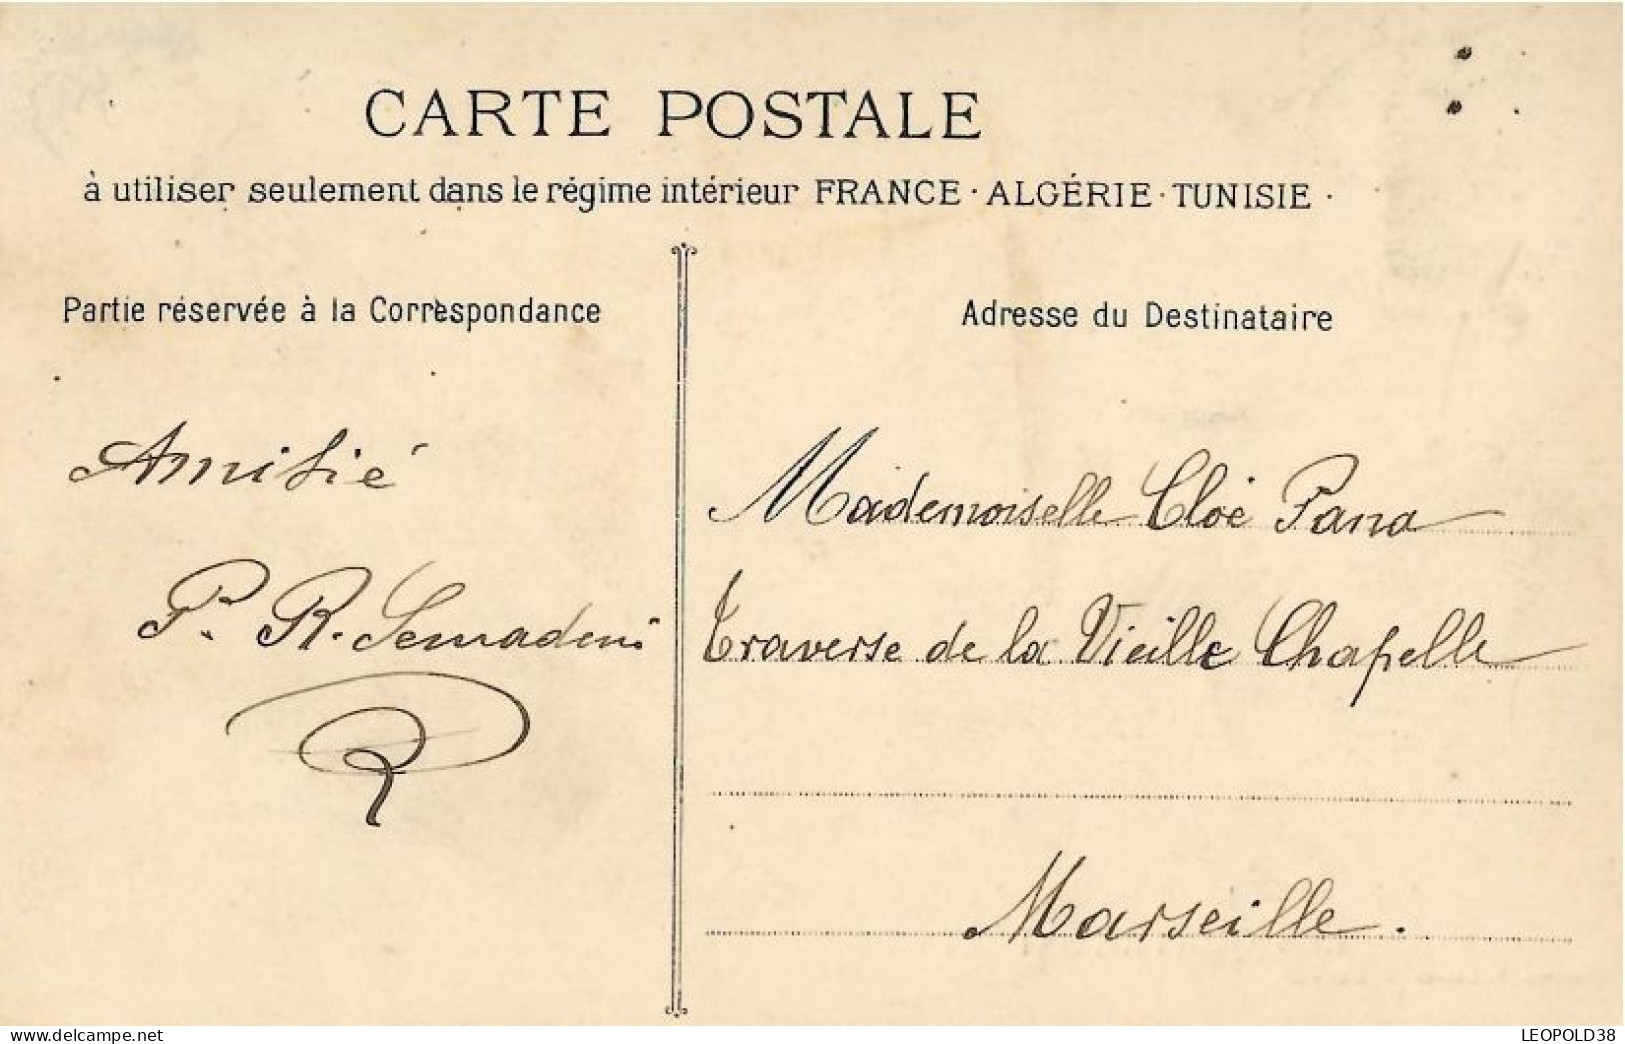 CARTE POSTALE
à utiliser seulement dans le régime intérieur FRANCE · ALGÉRIE · TUNISIE ·
Partie réservée à la Correspondance
Amitié
P. R. Semadeni
Adresse du Destinataire
Mademoiselle Cloé Pana
Traverse de la Vieille Chapelle
Marseille.
www.delcampe.net
LEOPOLD38